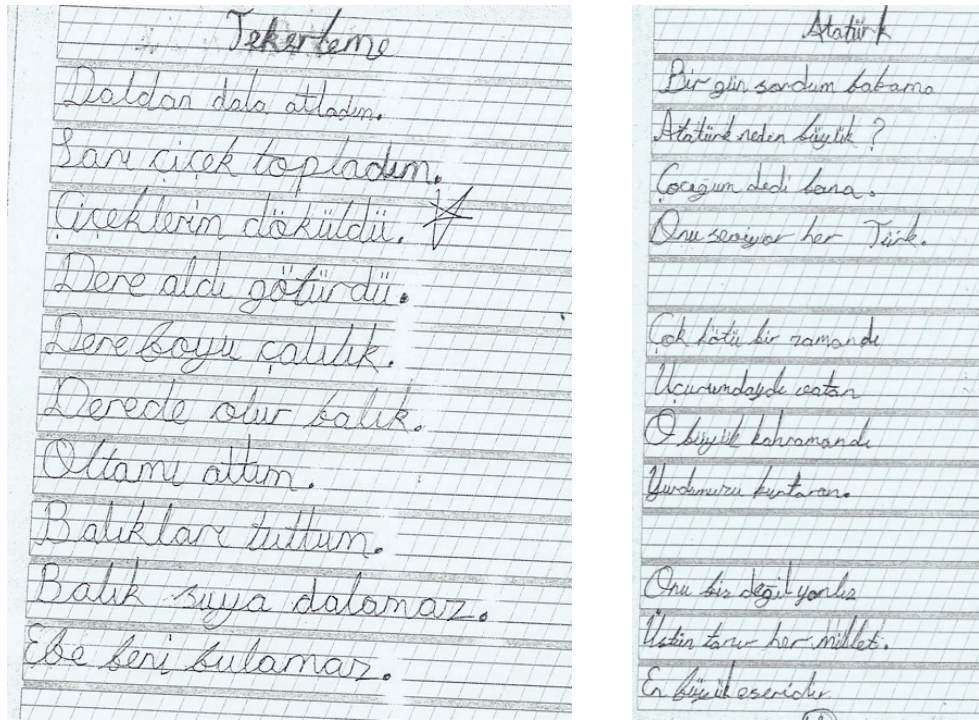 Tekerleme
Daldan dala atladım.
Sarı çiçek topladım.
Çiçeklerim döküldü.
Dere aldı götürdü.
Dere boyu çalılık.
Derede olur balık.
Oltamı attım.
Balıkları tuttum.
Balık suya dalamaz.
Ebe beni bulamaz.
Atatürk
Bir gün sordum babama
Atatürk neden büyük ?
Çocuğum dedi bana.
Onu seviyor her Türk.
Çok kötü bir zamandı
Uçurumdaydı vatan
O büyük kahramandı
Yurdumuzu kurtaran.
Onu biz değil yanlız
Üstün tanır her millet.
En büyük eseridir